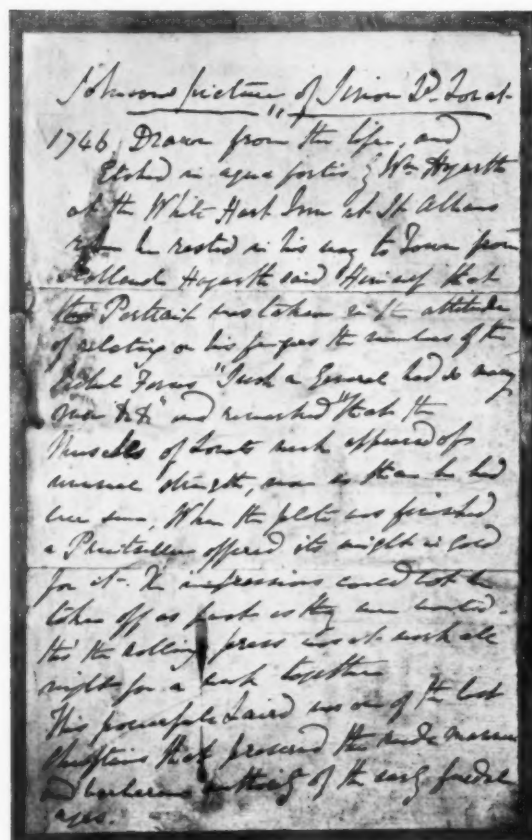 Johnsons picture of Simon Ld. Lovat
1746, Drawn from the life, and
Etched in aqua fortis by Wm Hogarth
at the White Hart Inn at St Albans
when he rested in his way to Town from
Scotland Hogarth said Himself that
this Portrait was taken in the attitude
of relating on his fingers the numbers of the
Rebel "Forces "Such a General had so many
men &&" and remarked "that the
Muscles of Lovats neck appeared of
unusual strength, more so than he had
ever seen, When the plate was finished
a Printseller offered its weight in gold
for it. The impressions could not be
taken off as fast as they were wanted.
tho' the rolling press was at work all
night for a week together
This powerful Laird was one of the last
Chieftains that preserved the rude manners
and barbarous authority of the early feudal
ages.